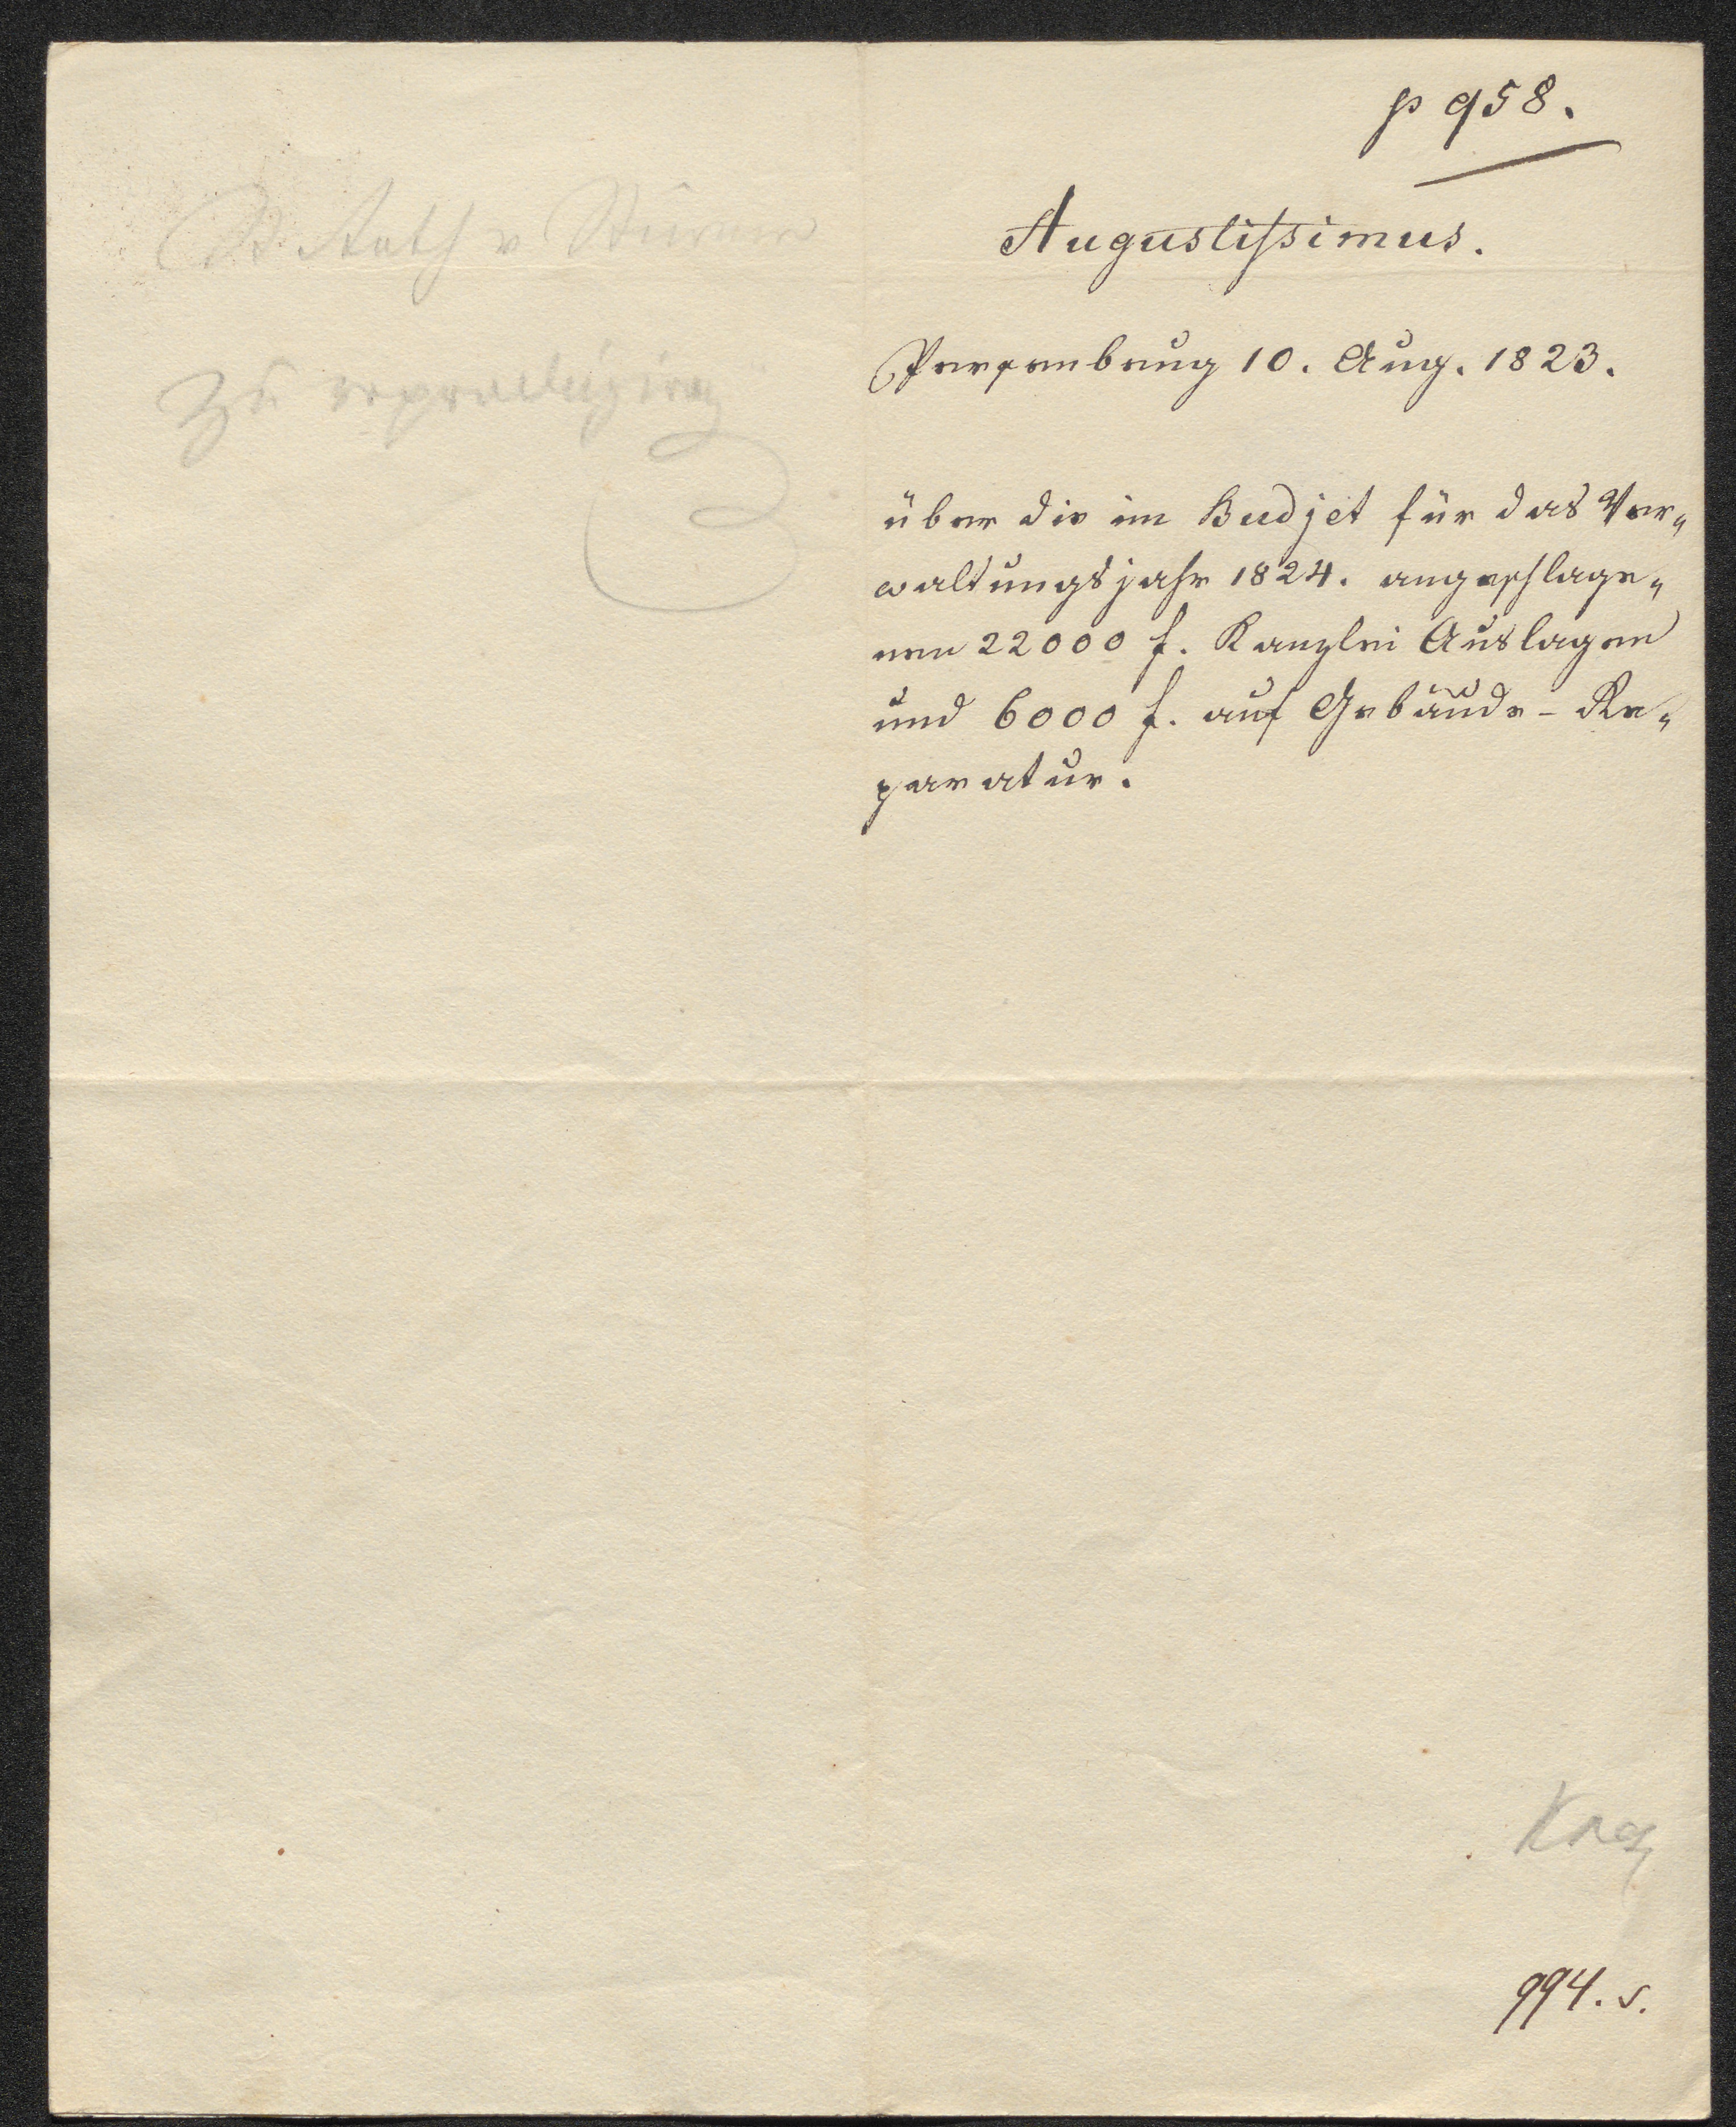 p 958.
Augustissimus.
Persenbeug 10. Aug. 1823.
über die im Budjet für das Ver„
waltungsjahr 1824. angeschlage„
nen 22000 f. Kanzlei Auslagen
und 6000 f. auf Gebäude - Re„
paratur.
Rath v Stürmer
Zu expediren
994. s.